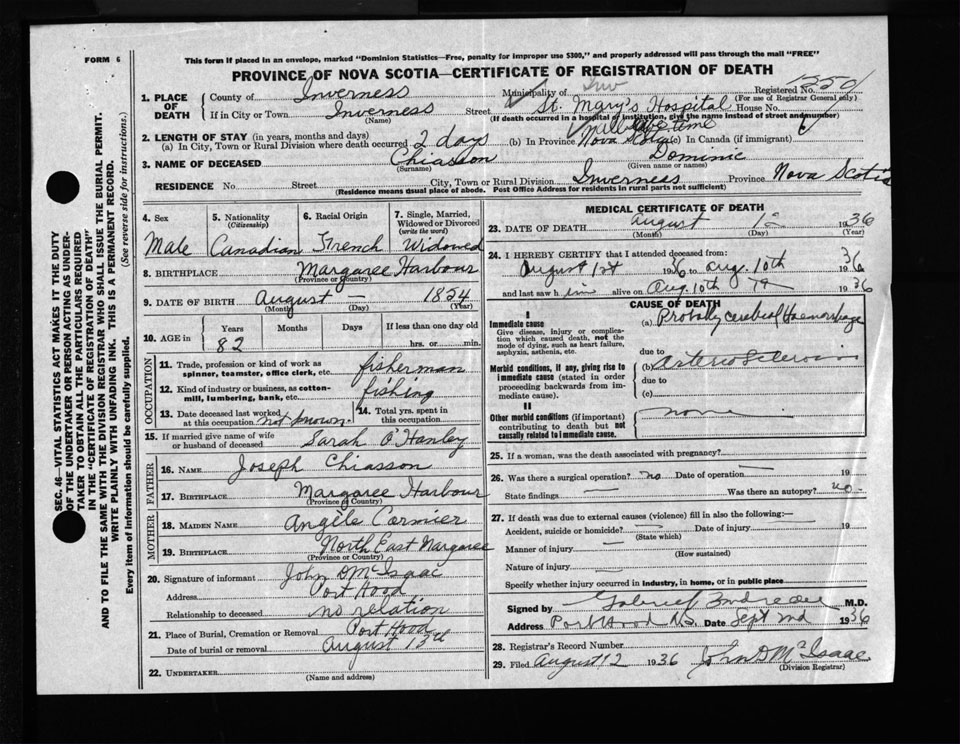 FORM 6
This form if placed in an envelope, marked "Dominion Statistics—Free, penalty for improper use $300," and properly addressed will pass through the mail "FREE"
PROVINCE OF NOVA SCOTIA—CERTIFICATE OF REGISTRATION OF DEATH
SEC. 46—VITAL STATISTICS ACT MAKES IT THE DUTY
OF THE UNDERTAKER OR PERSON ACTING AS UNDER-
TAKER TO OBTAIN ALL THE PARTICULARS REQUIRED
IN THE "CERTIFICATE OF REGISTRATION OF DEATH"
AND TO FILE THE SAME WITH THE DIVISION REGISTRAR WHO SHALL ISSUE THE BURIAL PERMIT.
WRITE PLAINLY WITH UNFADING INK. THIS IS A PERMANENT RECORD.
Every item of Information should be carefully supplied. (See reverse side for instructions.)
1. PLACE OF DEATH
County of Inverness Municipality of Inv Registered No.
(For use of Registrar General only)
If in City or Town Inverness Street St. Mary's Hospital House No.
(Name) (If death occurred in a hospital or institution, give the name instead of street and number)
2. LENGTH OF STAY (in years, months and days)
(a) In City, Town or Rural Division where death occurred 2 days (b) In Province Nova Scotia (c) In Canada (if immigrant) life time
3. NAME OF DECEASED Chiasson Dominic
(Surname) (Given name or names)
RESIDENCE No. Street City, Town or Rural Division Inverness Province Nova Scotia
(Residence means usual place of abode. Post Office Address for residents in rural parts not sufficient)
4. Sex Male
5. Nationality (Citizenship) Canadian
6. Racial Origin French
7. Single, Married, Widowed or Divorced (write the word) Widowed
8. BIRTHPLACE Margaree Harbour
(Province or Country)
9. DATE OF BIRTH August — 1854
(Month) (Day) (Year)
10. AGE in Years Months Days If less than one day old
82 hrs. or min.
OCCUPATION
11. Trade, profession or kind of work as spinner, teamster, office clerk, etc. fisherman
12. Kind of industry or business, as cotton-mill, lumbering, bank, etc. fishing
13. Date deceased last worked at this occupation not known.
14. Total yrs. spent in this occupation
15. If married give name of wife or husband of deceased Sarah O'Hanley
FATHER
16. NAME Joseph Chiasson
17. BIRTHPLACE Margaree Harbour
(Province or Country)
MOTHER
18. MAIDEN NAME Angèle Cormier
19. BIRTHPLACE North East Margaree
(Province or Country)
20. Signature of informant John D McIsaac
Address Port Hood
Relationship to deceased no relation
21. Place of Burial, Cremation or Removal Port Hood
Date of burial or removal August 13th
22. UNDERTAKER
(Name and address)
MEDICAL CERTIFICATE OF DEATH
23. DATE OF DEATH August 1936
(Month) (Day) (Year)
24. I HEREBY CERTIFY that I attended deceased from:
August 1st 1936 to Aug. 10th 1936
and last saw him alive on Aug. 10th 1936
CAUSE OF DEATH
I
Immediate cause
Give disease, injury or complication which caused death, not the mode of dying, such as heart failure, asphyxia, asthenia, etc.
(a) Probably cerebral Haemorrhage
due to
Morbid conditions, if any, giving rise to immediate cause (stated in order proceeding backwards from immediate cause).
(b) Arterio Sclerosis
due to
(c)
II
Other morbid conditions (if important) contributing to death but not causally related to immediate cause.
none
25. If a woman, was the death associated with pregnancy?
26. Was there a surgical operation? no Date of operation — 19
State findings — Was there an autopsy? no.
27. If death was due to external causes (violence) fill in also the following:—
Accident, suicide or homicide? — Date of injury 19
(State which)
Manner of injury —
(How sustained)
Nature of injury —
Specify whether injury occurred in industry, in home, or in public place
Signed by Gabriel M.D.
Address Port Hood N.S. Date Sept 2nd 1936
28. Registrar's Record Number
29. Filed August 12 1936 John D McIsaac
(Division Registrar)